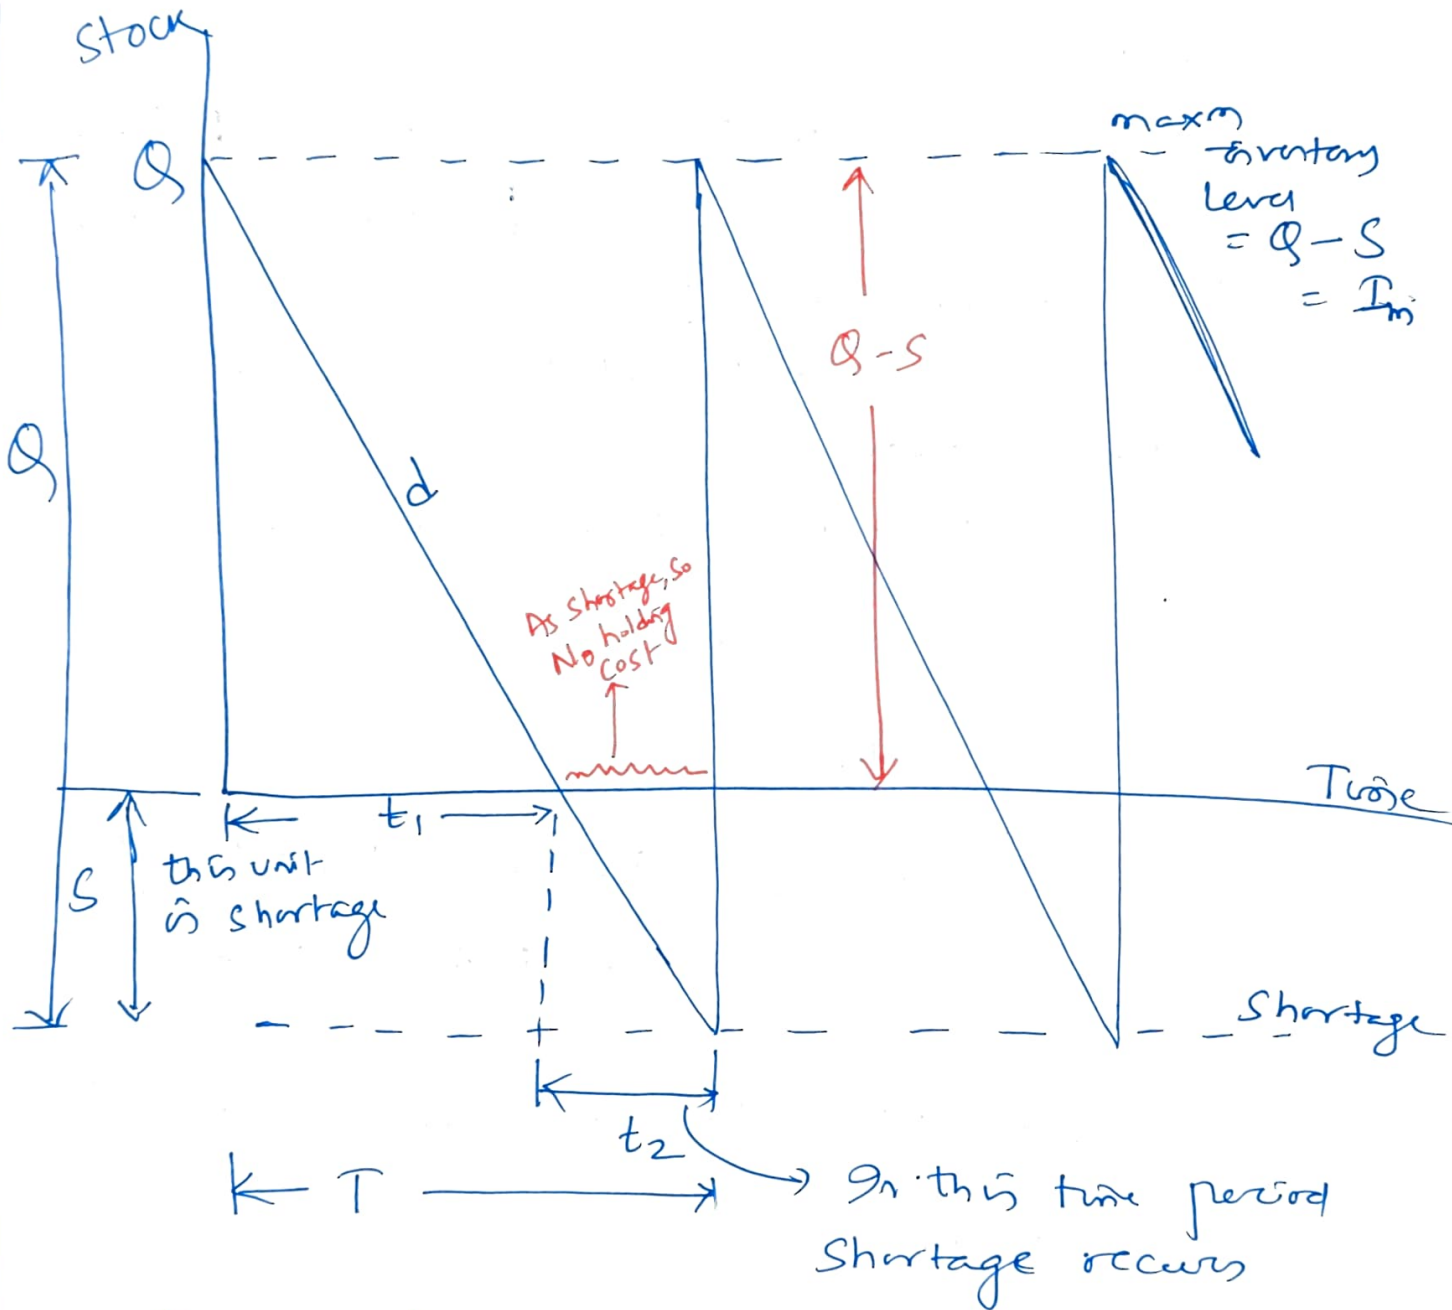 Stock
Q
maxm
inventory
level
= Q - S
= Im
Q - S
Q
d
As Shortage, so
No holding
cost
Time
t1
this unit
is shortage
S
Shortage
t2
T
In this time period
Shortage occurs